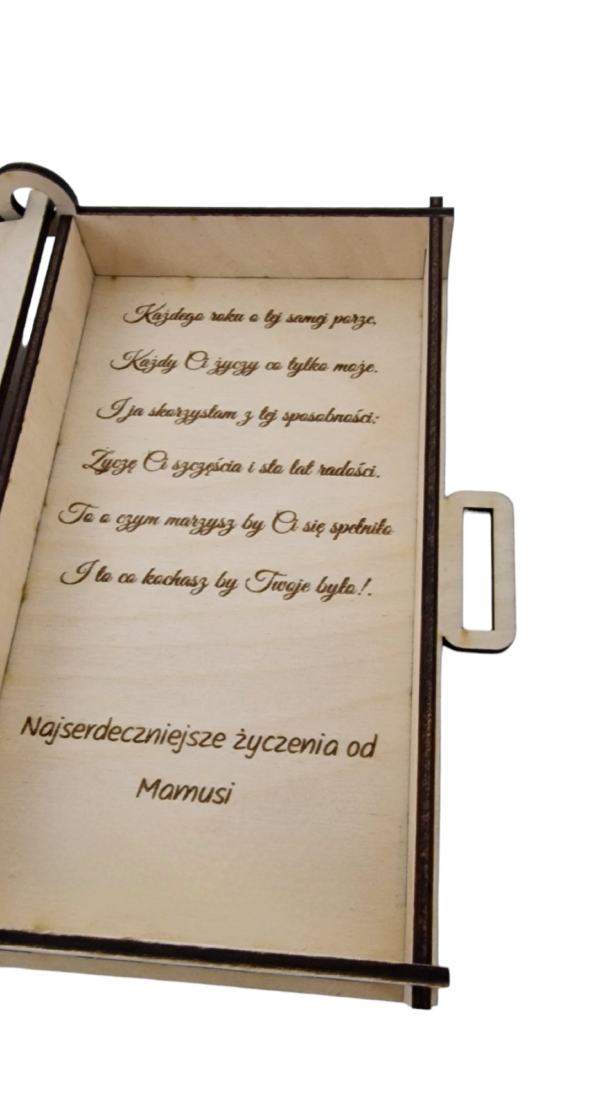 Każdego roku o tej samej porze,
Każdy Ci życzy co tylko może.
I ja skorzystam z tej sposobności:
Życzę Ci szczęścia i sto lat radości.
To o czym marzysz by Ci się spełniło
I to co kochasz by Twoje było!.
Najserdeczniejsze życzenia od
Mamusi